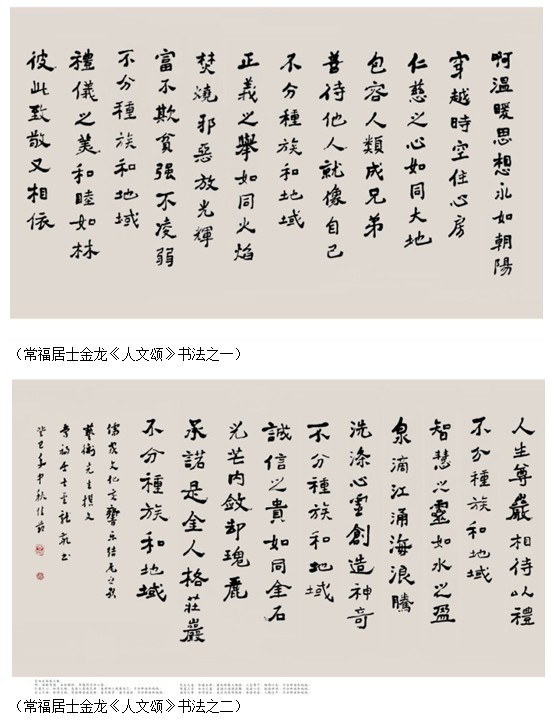 啊溫暖思想永如朝陽
穿越時空住心房
仁慈之心如同大地
包容人類成兄弟
善待他人就像自己
不分種族和地域
正義之舉如同火焰
焚燒邪惡放光輝
富不欺貧强不凌弱
不分種族和地域
禮儀之美和睦如林
彼此致敬又相依
（常福居士金龙《人文颂》书法之一）
人生尊嚴相待以禮
不分種族和地域
智慧之靈如水之盈
泉滴江涌海浪騰
洗滌心靈創造神奇
不分種族和地域
誠信之貴如同金石
光芒内斂却瑰麗
承諾是全人格莊嚴
不分種族和地域
儒家文化交響樂結尾之歌
先生撰文
常福居士金龍敬书
癸巳年中秋佳節
（常福居士金龙《人文颂》书法之二）